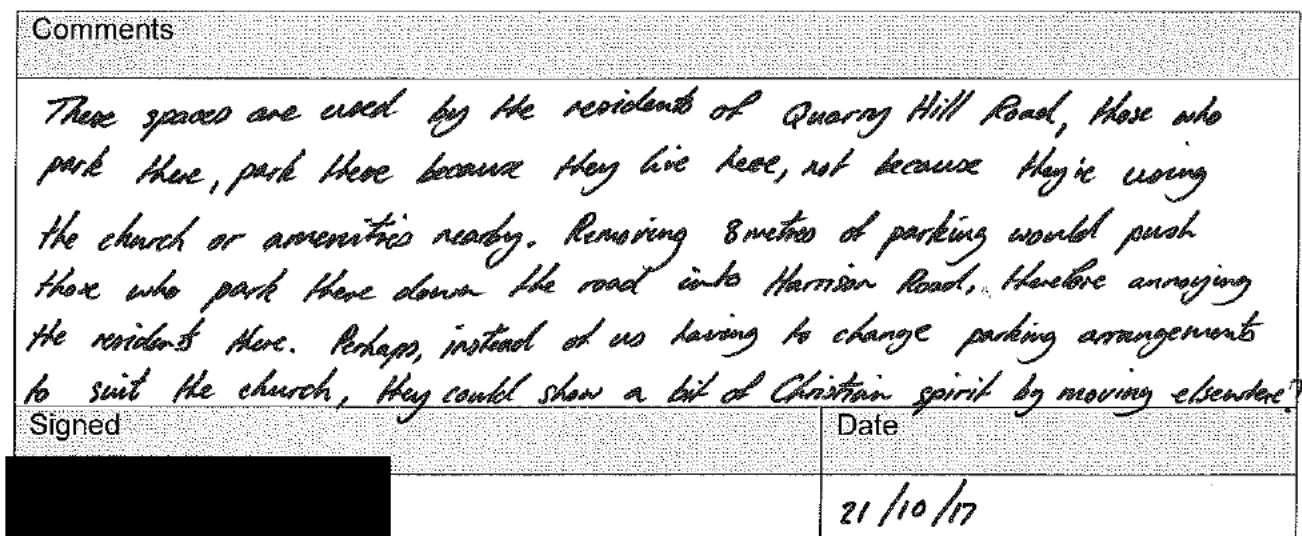 Comments
These spaces are used by the residents of Quarry Hill Road, those who
park there, park there because they live here, not because they're using
the church or amenities nearby. Removing 8 metres of parking would push
those who park there down the road into Harrison Road, therefore annoying
the residents there. Perhaps, instead of us having to change parking arrangements
to suit the church, they could show a bit of Christian spirit by moving elsewhere?
Signed
Date
21/10/17